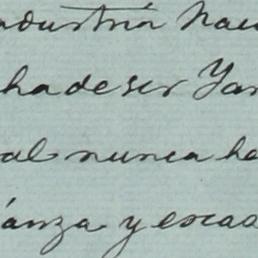 ndustria Nac
ha de ser Yan
al nunca ha
ianza y escas